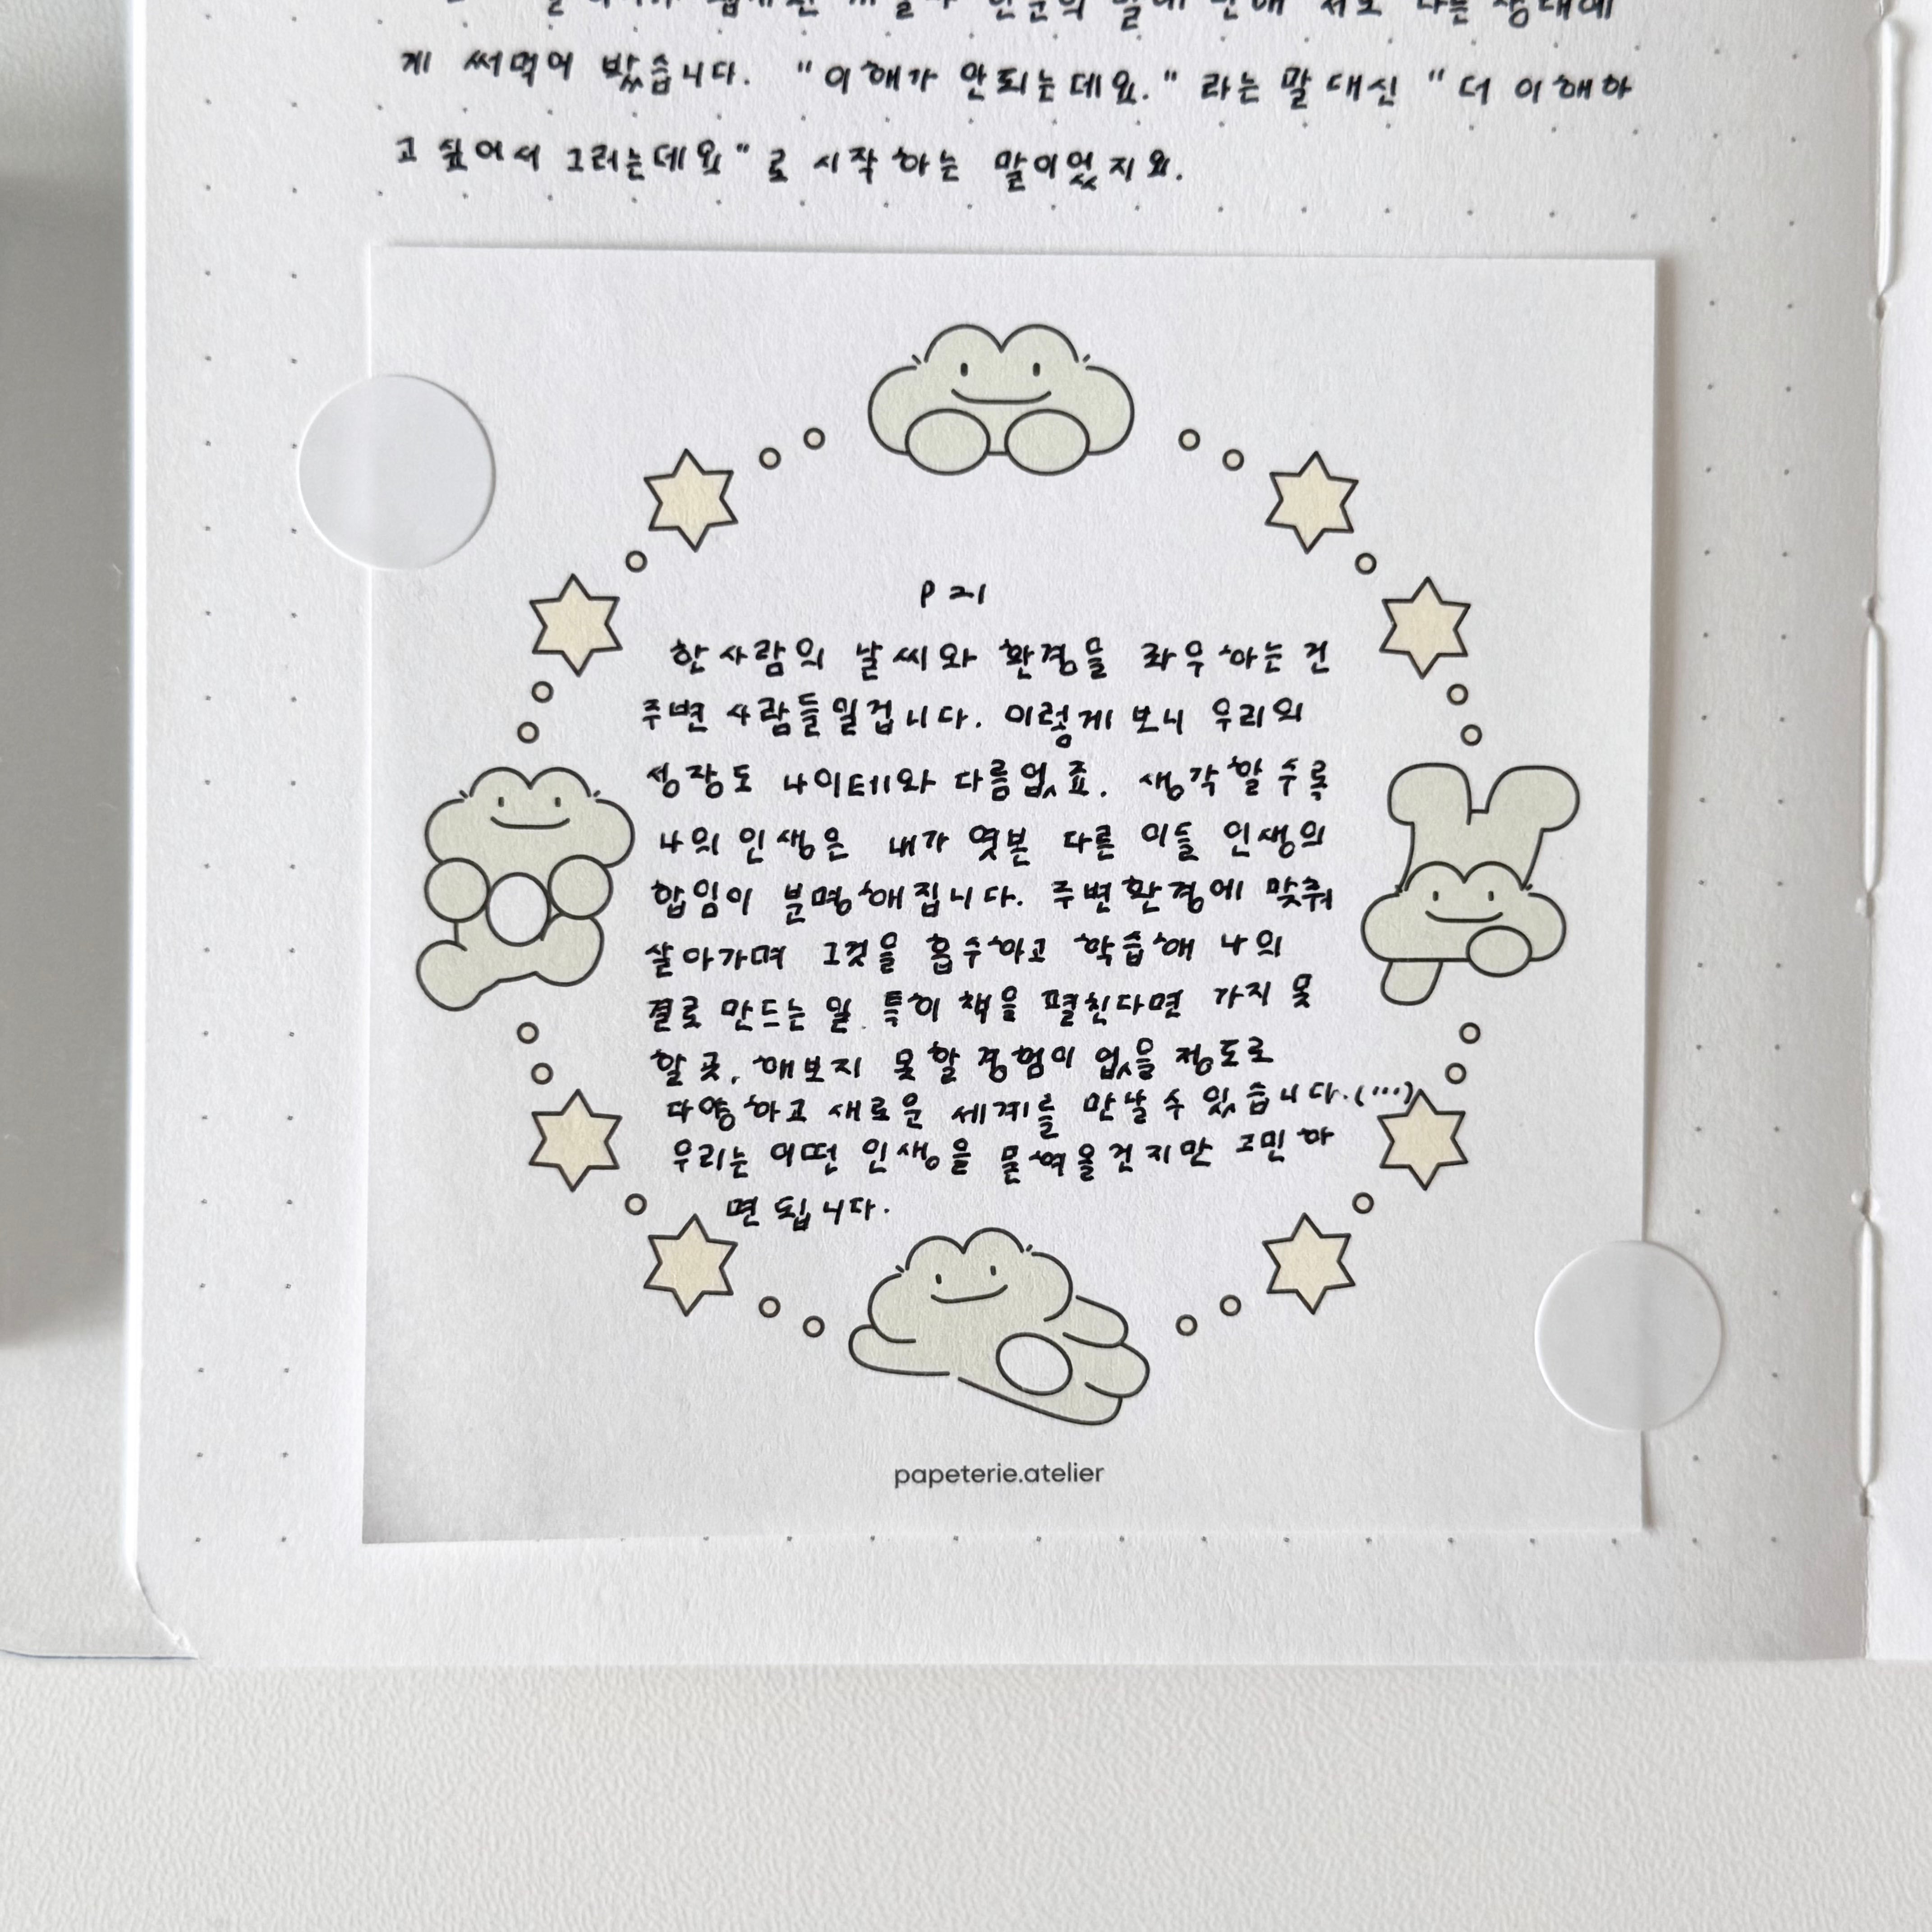 게 써먹어 봤습니다. "이해가 안되는데요." 라는 말 대신 "더 이해하
고 싶어서 그러는데요"로 시작하는 말이었지요.
P 21
한 사람의 날씨와 환경을 좌우하는 건
주변 사람들일겁니다. 이렇게 보니 우리의
성장도 나이테와 다름없죠. 생각할수록
나의 인생은 내가 엿본 다른 이들 인생의
합임이 분명해집니다. 주변환경에 맞춰
살아가며 그것을 흡수하고 학습해 나의
결로 만드는 일. 특히 책을 펼친다면 가지 못
할 곳, 해보지 못할 경험이 없을 정도로
다양하고 새로운 세계를 만날 수 있습니다.(···)
우리는 어떤 인생을 묻혀올건지만 고민하
면 됩니다.
papeterie.atelier